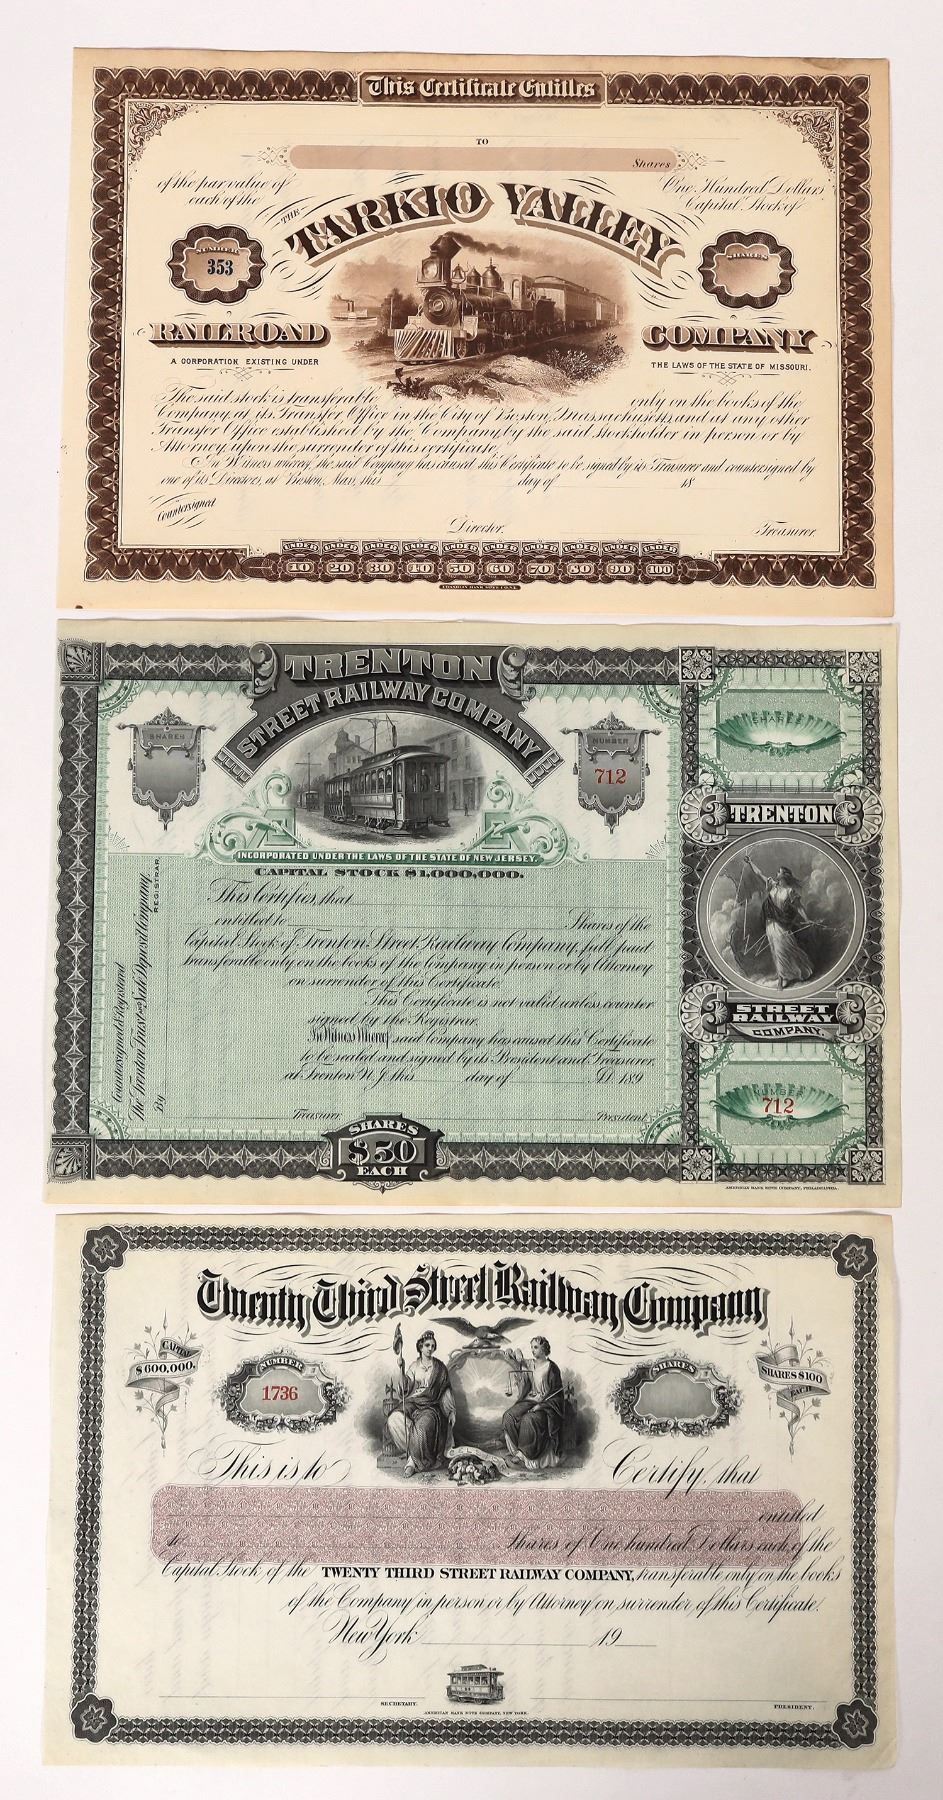 This Certificate Entitles
TO
Shares
of the par value of One Hundred Dollars
each of the Capital Stock of
THE TARKIO VALLEY
NUMBER
353
SHARES
RAILROAD COMPANY
A CORPORATION EXISTING UNDER THE LAWS OF THE STATE OF MISSOURI.
The said stock is transferable only on the books of the
Company at its Transfer Office in the City of Boston, Massachusetts, and at any other
Transfer Office established by the Company, by the said stockholder in person or by
Attorney, upon the surrender of this certificate.
In Witness whereof, the said Company has caused this Certificate to be signed by its Treasurer and countersigned by
one of its Directors, at Boston, Mass, this day of 18
Countersigned
Director. Treasurer.
UNDER UNDER UNDER UNDER UNDER UNDER UNDER UNDER UNDER UNDER
10 20 30 40 50 60 70 80 90 100
TRENTON
STREET RAILWAY COMPANY
SHARES
NUMBER
712
INCORPORATED UNDER THE LAWS OF THE STATE OF NEW JERSEY.
CAPITAL STOCK $1,000,000.
This Certifies, that
entitled to Shares of the
Capital Stock of Trenton Street Railway Company, full paid
transferable only on the books of the Company in person or by Attorney
on surrender of this Certificate.
This Certificate is not valid unless counter
signed by the Registrar.
In Witness Whereof said Company has caused this Certificate
to be sealed and signed by its President and Treasurer,
at Trenton N.J. this day of A.D. 189
Treasurer. President.
SHARES
$50
EACH
Countersigned & Registered
The Trenton Trust and Safe Deposit Company,
By REGISTRAR.
SHARES
TRENTON
STREET
RAILWAY
COMPANY.
NUMBER
712
AMERICAN BANK NOTE COMPANY, PHILADELPHIA.
Twenty Third Street Railway Company
CAPITAL
$600,000.
NUMBER
1736
SHARES
SHARES $100
EACH
This is to Certify, that
entitled
to Shares of One hundred Dollars each of the
Capital Stock of the TWENTY THIRD STREET RAILWAY COMPANY, transferable only on the books
of the Company in person or by Attorney on surrender of this Certificate.
New York 19
SECRETARY. PRESIDENT.
AMERICAN BANK NOTE COMPANY, NEW YORK.